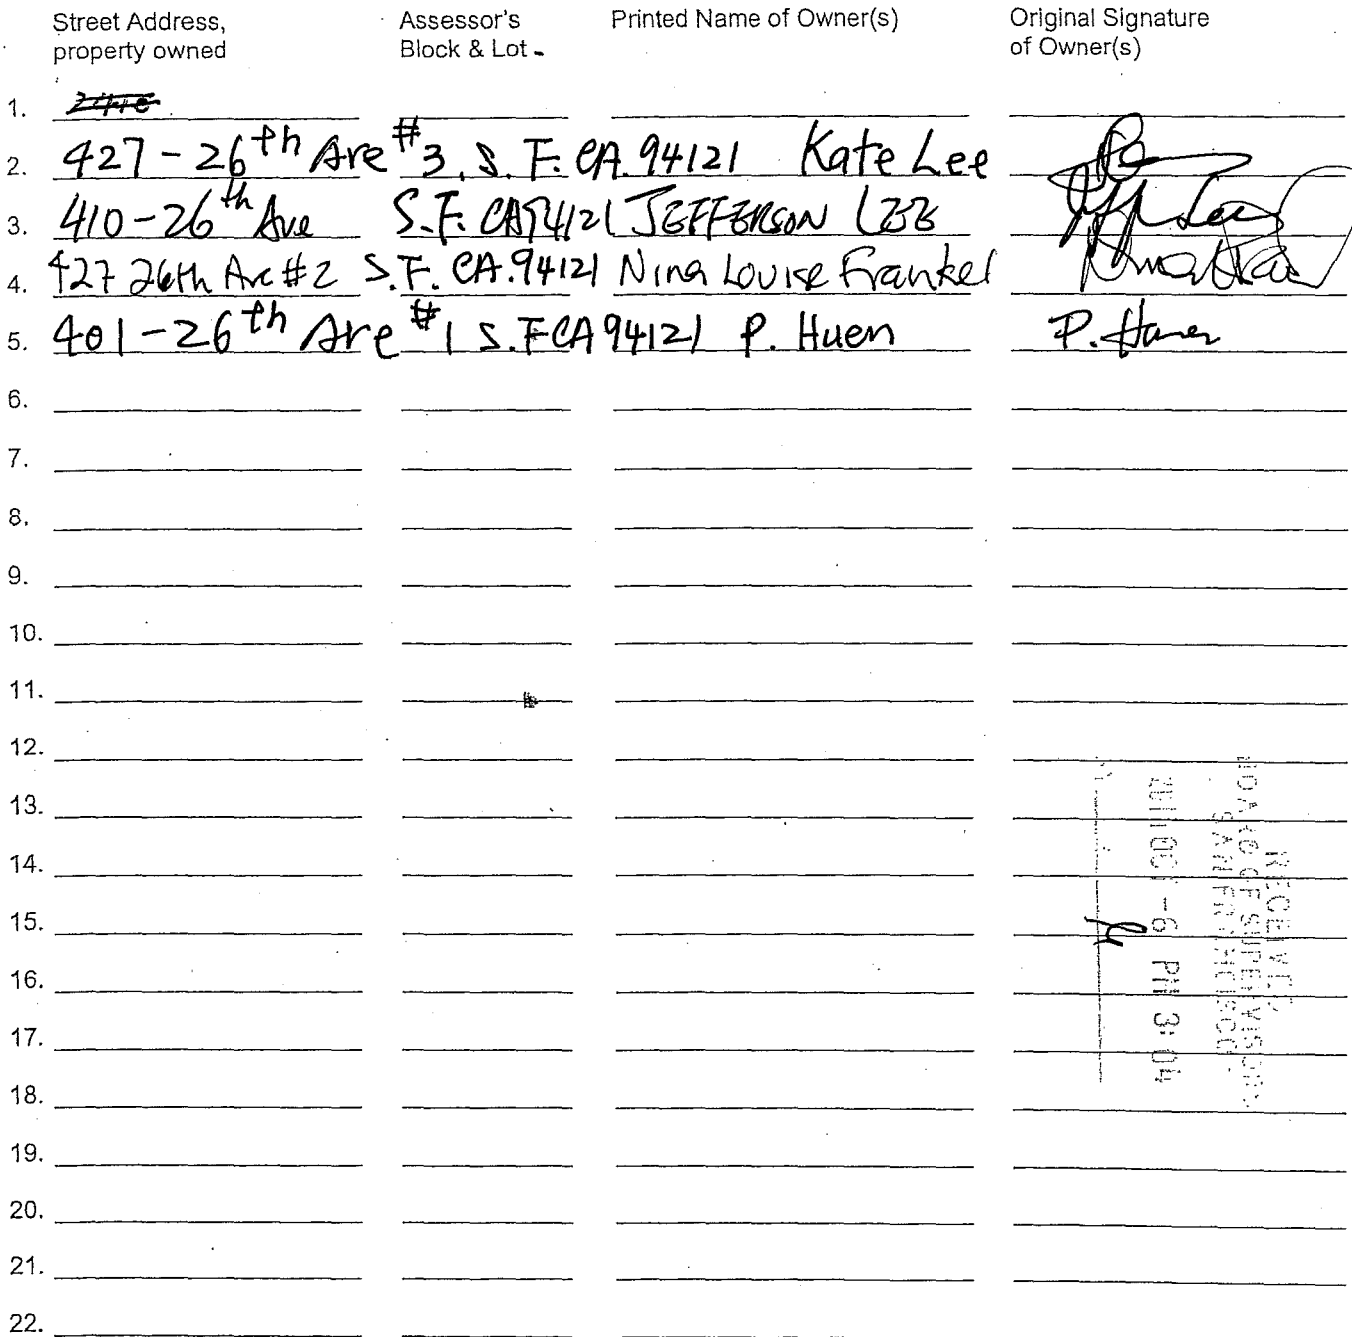 Street Address, Assessor's Printed Name of Owner(s) Original Signature
property owned Block & Lot - of Owner(s)
1.
2. 427-26th Ave #3, S. F. CA. 94121 Kate Lee
3. 410-26th Ave S.F. CA 94121 JEFFERSON LEE
4. 427 26th Ave #2 S.F. CA. 94121 Nina Louise Frankel
5. 401-26th Ave #1 S.F CA 94121 P. Huen P.
6.
7.
8.
9.
10.
11.
12.
13.
14.
15.
16.
17.
18.
19.
20.
21.
22.
RECEIVED
BOARD OF SUPERVISORS
SAN FRANCISCO
OCT -6 PM 3:04